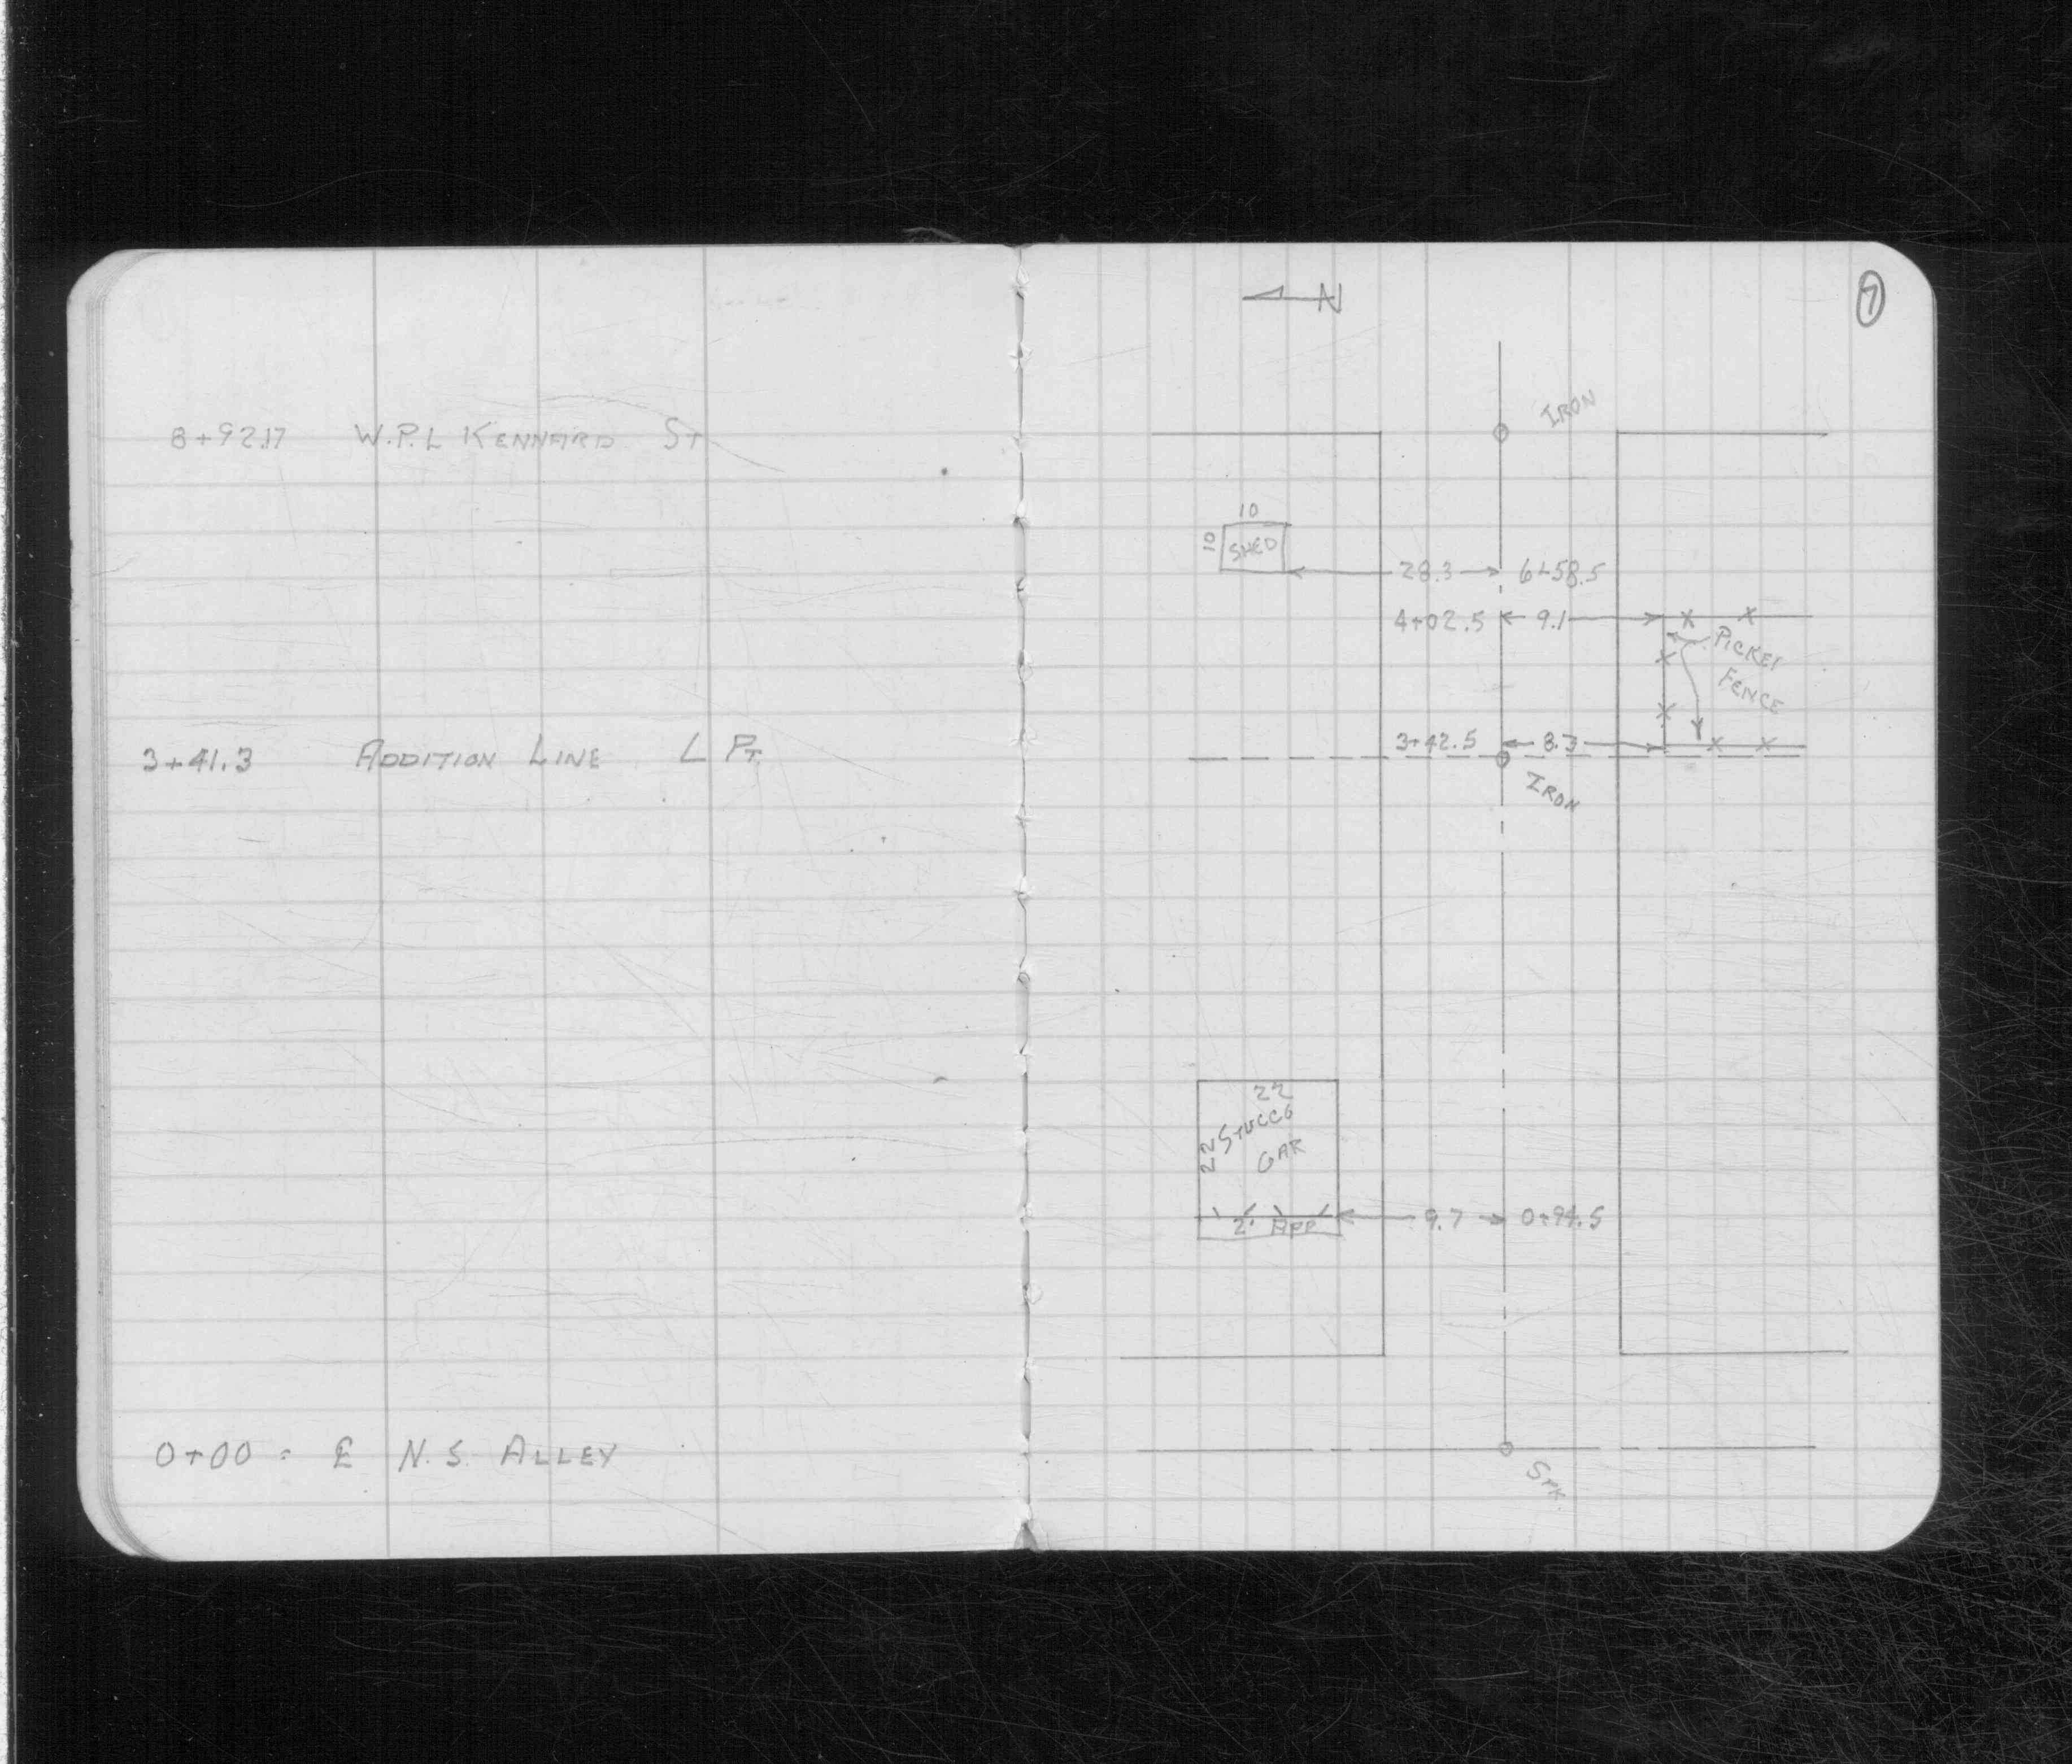 8+92.17 W.P.L KENNARD ST
3+41.3 ADDITION LINE L PT.
0+00 = ℄ N.S. ALLEY
7
N
IRON
10
10
SHED
28.3 6+58.5
4+02.5 9.1
PICKET
FENCE
3+42.5 8.3
IRON
22
22
STUCCO
GAR
2' APP
9.7 0+94.5
SPK.